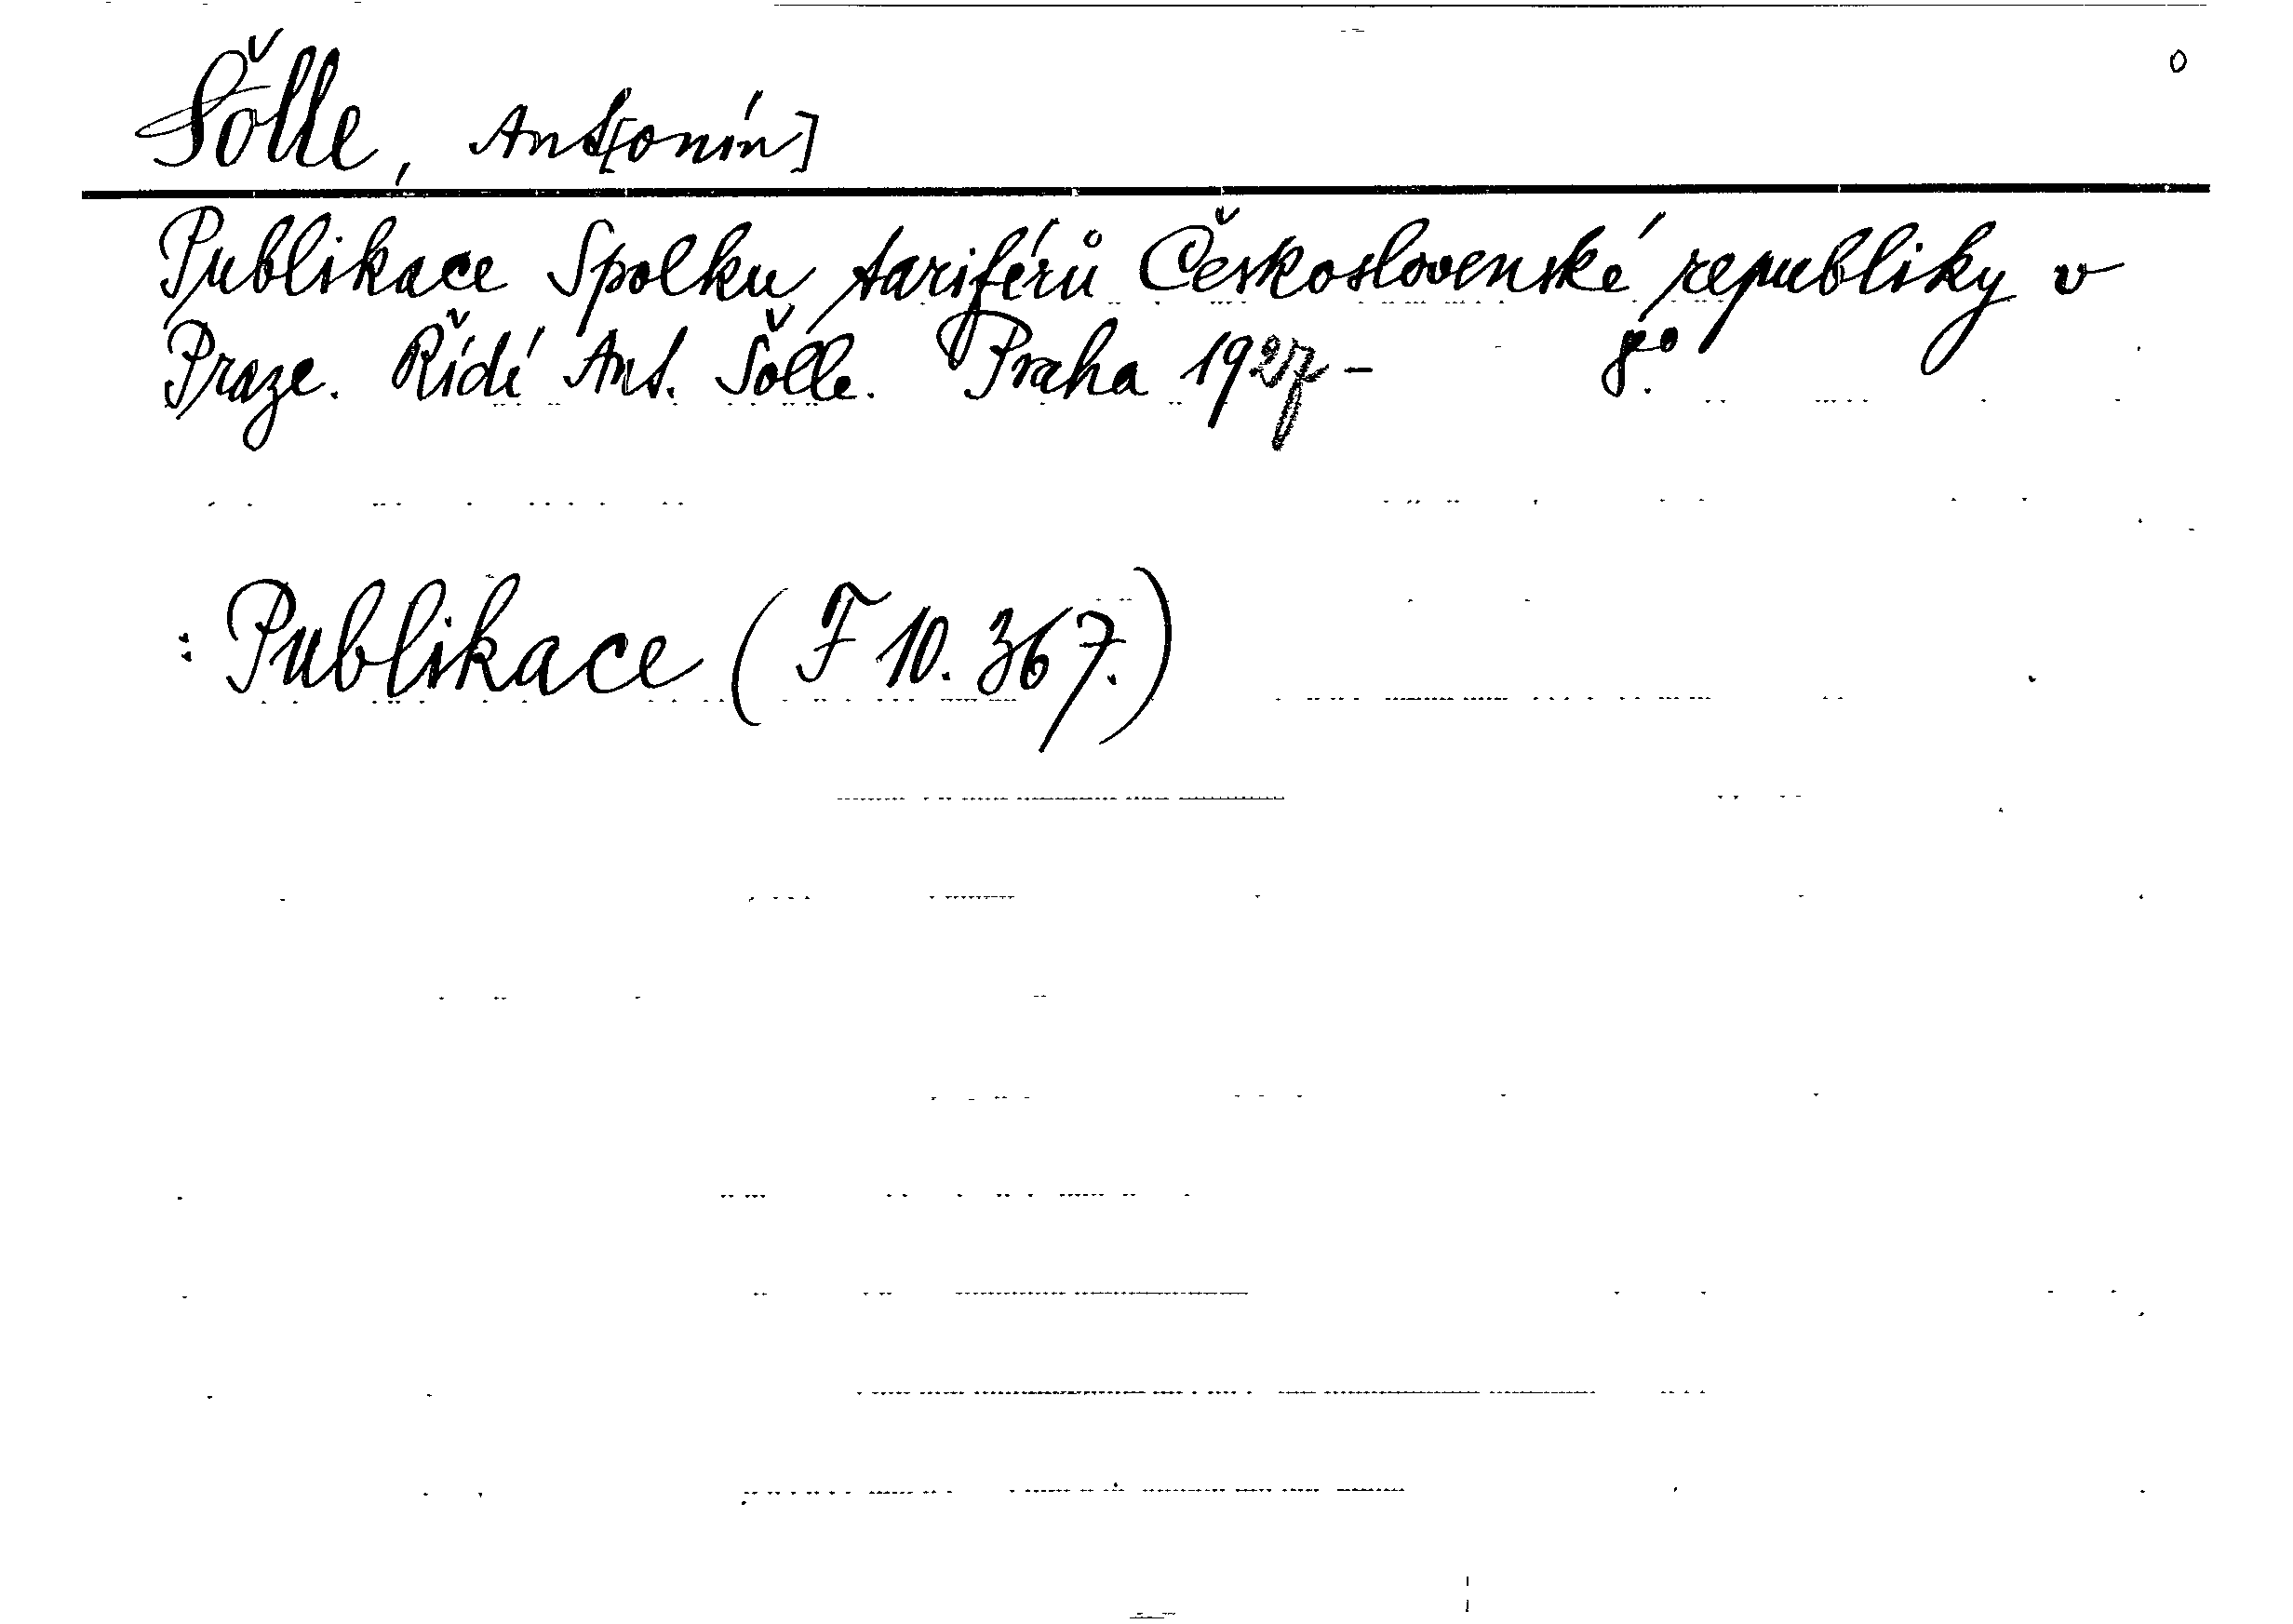 Šolle, Ant[onín]
Publikace Spolku tariférů Československé republiky v
Praze. Řídí Ant. Šolle. Praha 1927- 8°.
: Publikace (F 10.367.)